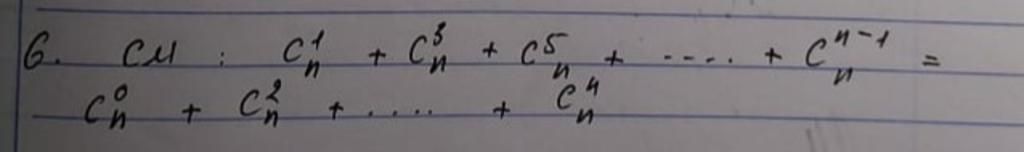 6. CM : C_n^1 + C_n^3 + C_n^5 + .... + C_n^{n-1} =
C_n^0 + C_n^2 + .... + C_n^n